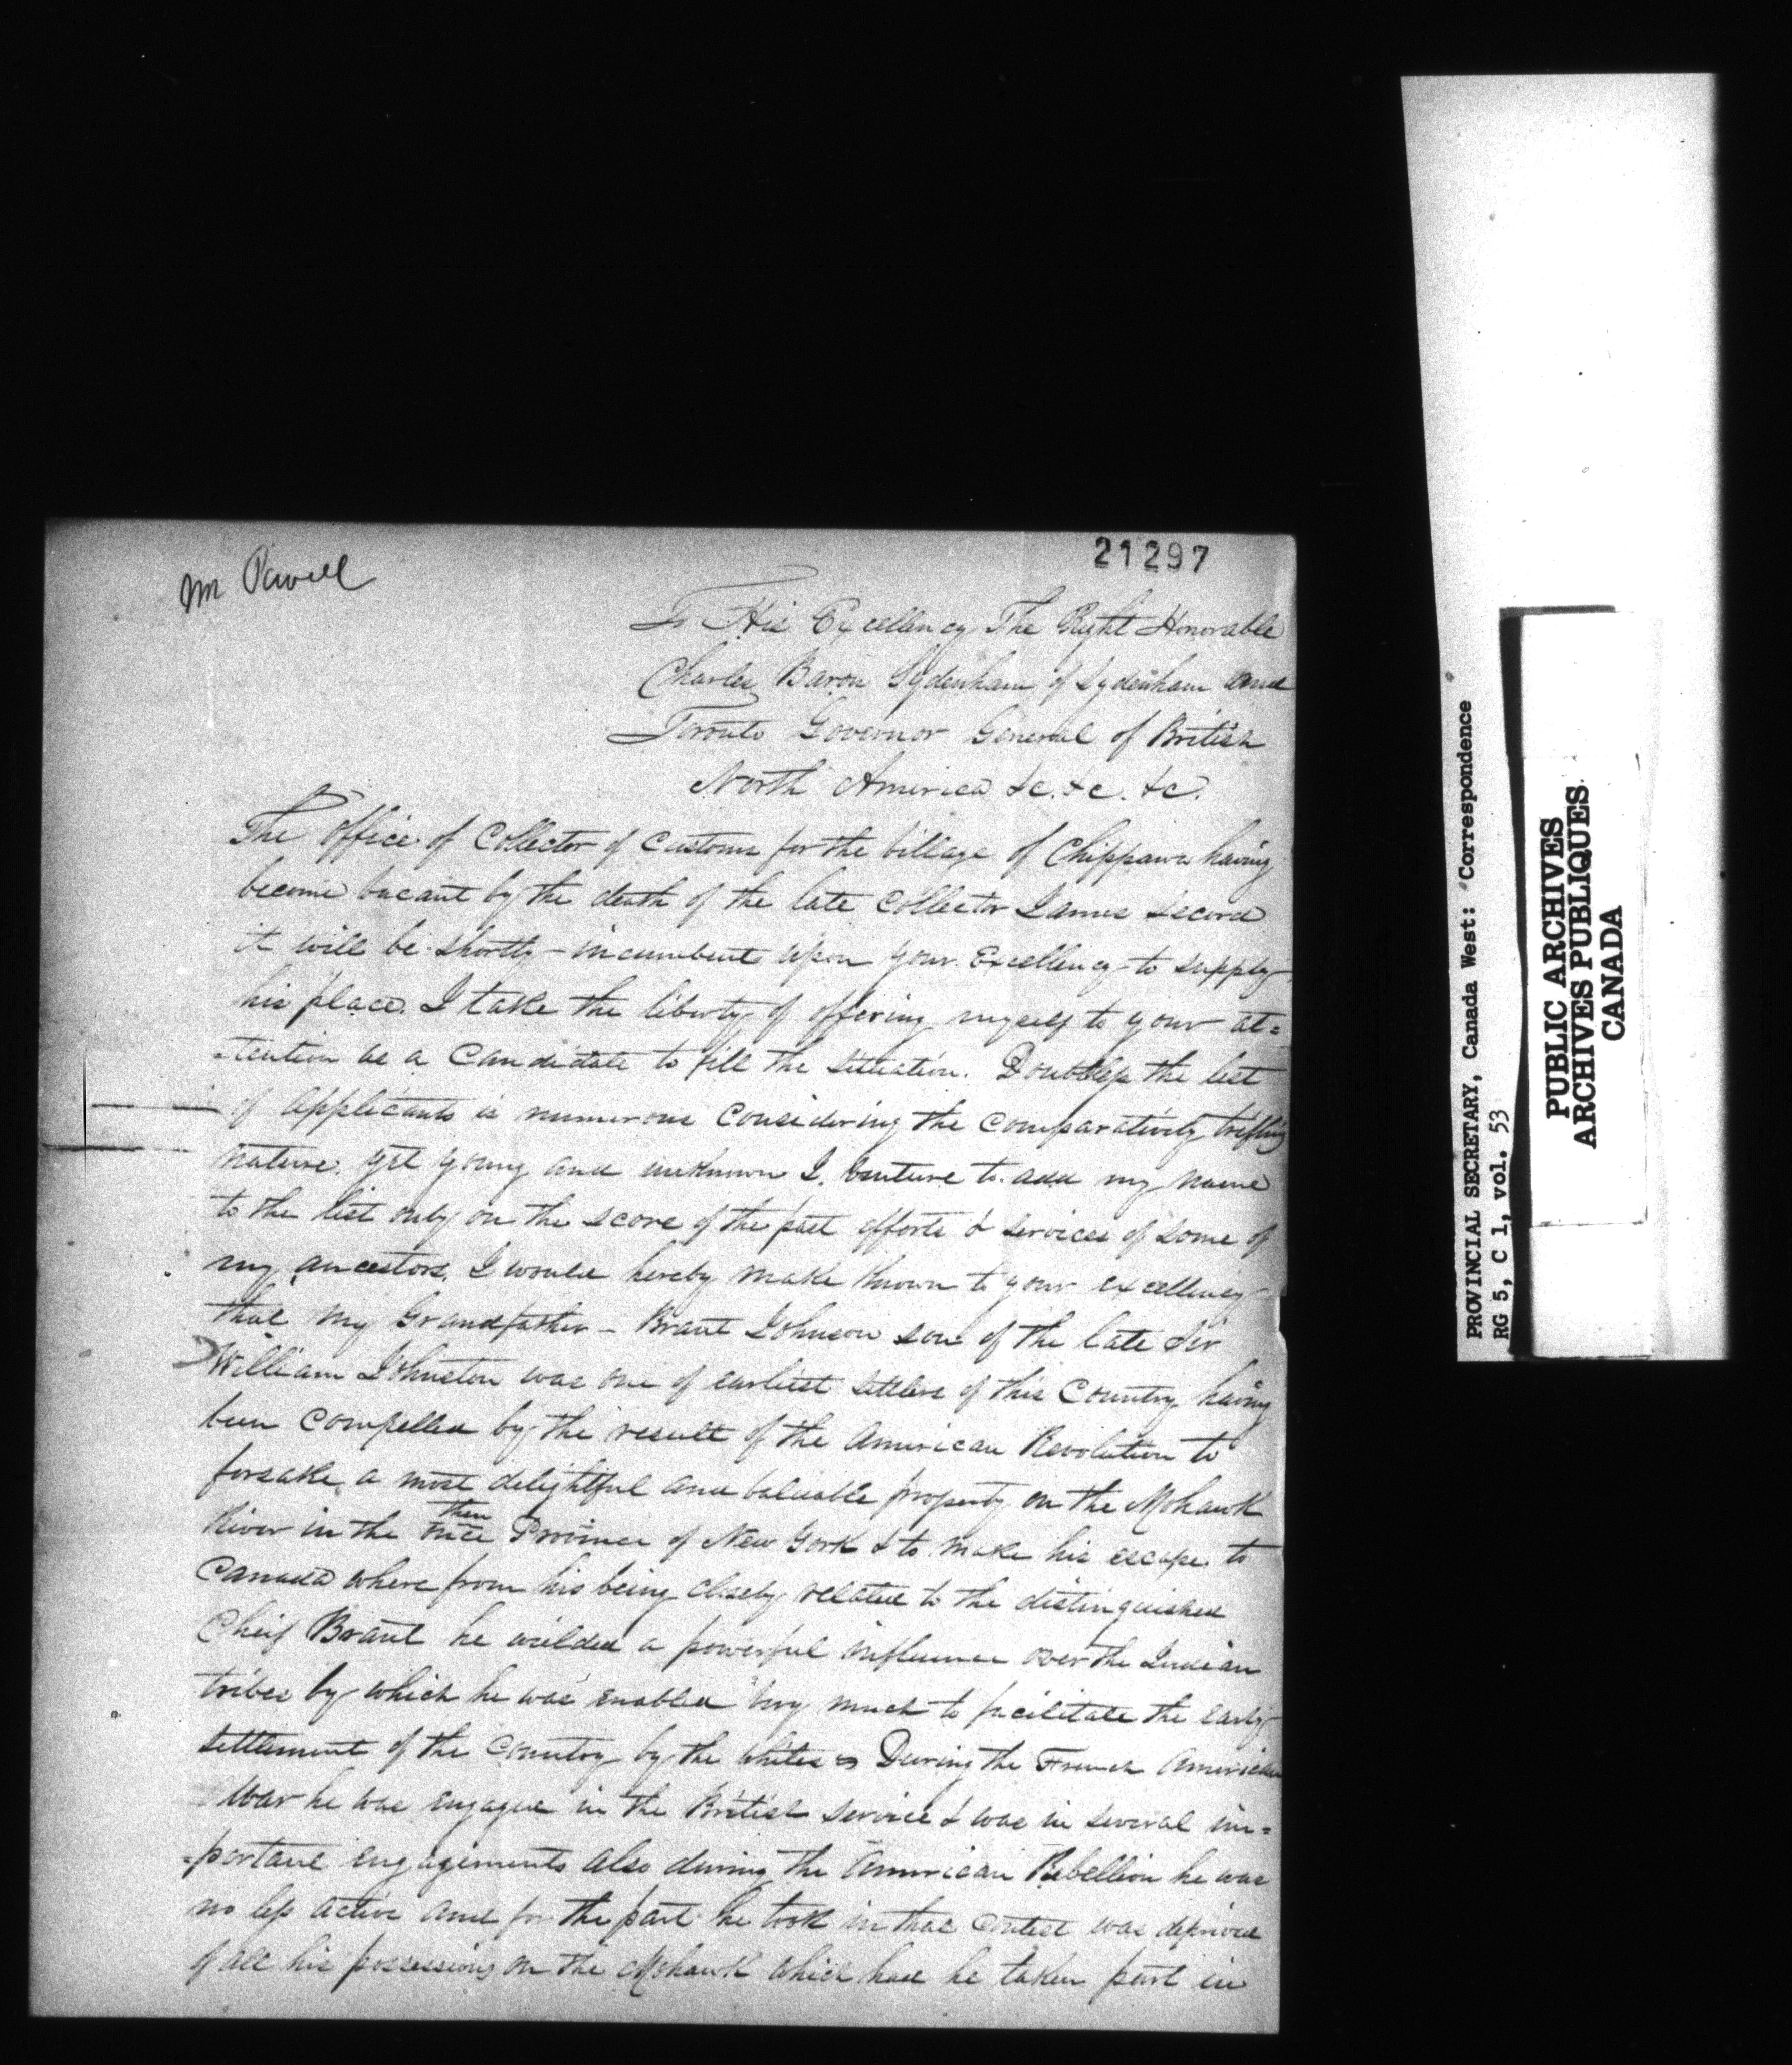 Mr Powell
21297
To His Excellency The Right Honorable
Charles Baron Sydenham of Sydenham and
Toronto Governor General of British
North America &c. &c. &c.
The Office of Collector of Customs for the Village of Chippawa having
become vacant by the death of the late Collector James Secord
it will be shortly incumbent upon your Excellency to supply
his place. I take the liberty of offering myself to your at=
=tention as a Candidate to fill the situation. Doubtless the list
of applicants is numerous considering the comparatively trifling
nature. yet young and unknown I venture to add my name
to the list only on the score of the past efforts & services of some of
my ancestors. I would hereby make known to your excellency
that my Grandfather - Brant Johnson son of the late Sir
William Johnston was one of earliest settlers of this Country having
been compelled by the result of the American Revolution to
forsake a most delightful and valuable property on the Mohawk
then
River in the Province of New York & to make his escape to
Canada where from his being closely related to the distinguished
Cheif Brant he wielded a powerful influence over the Indian
tribes by which he was enabled very much to facilitate the early
settlement of the Country by the whites During the French American
War he was engaged in the British service & was in several im=
=portant engagements also during the American Rebellion he was
no less active and for the part he took in that contest was deprived
of all his possessions on the Mohawk which had he taken part in
PROVINCIAL SECRETARY, Canada West: Correspondence
RG 5, C 1, vol. 53
PUBLIC ARCHIVES
ARCHIVES PUBLIQUES
CANADA